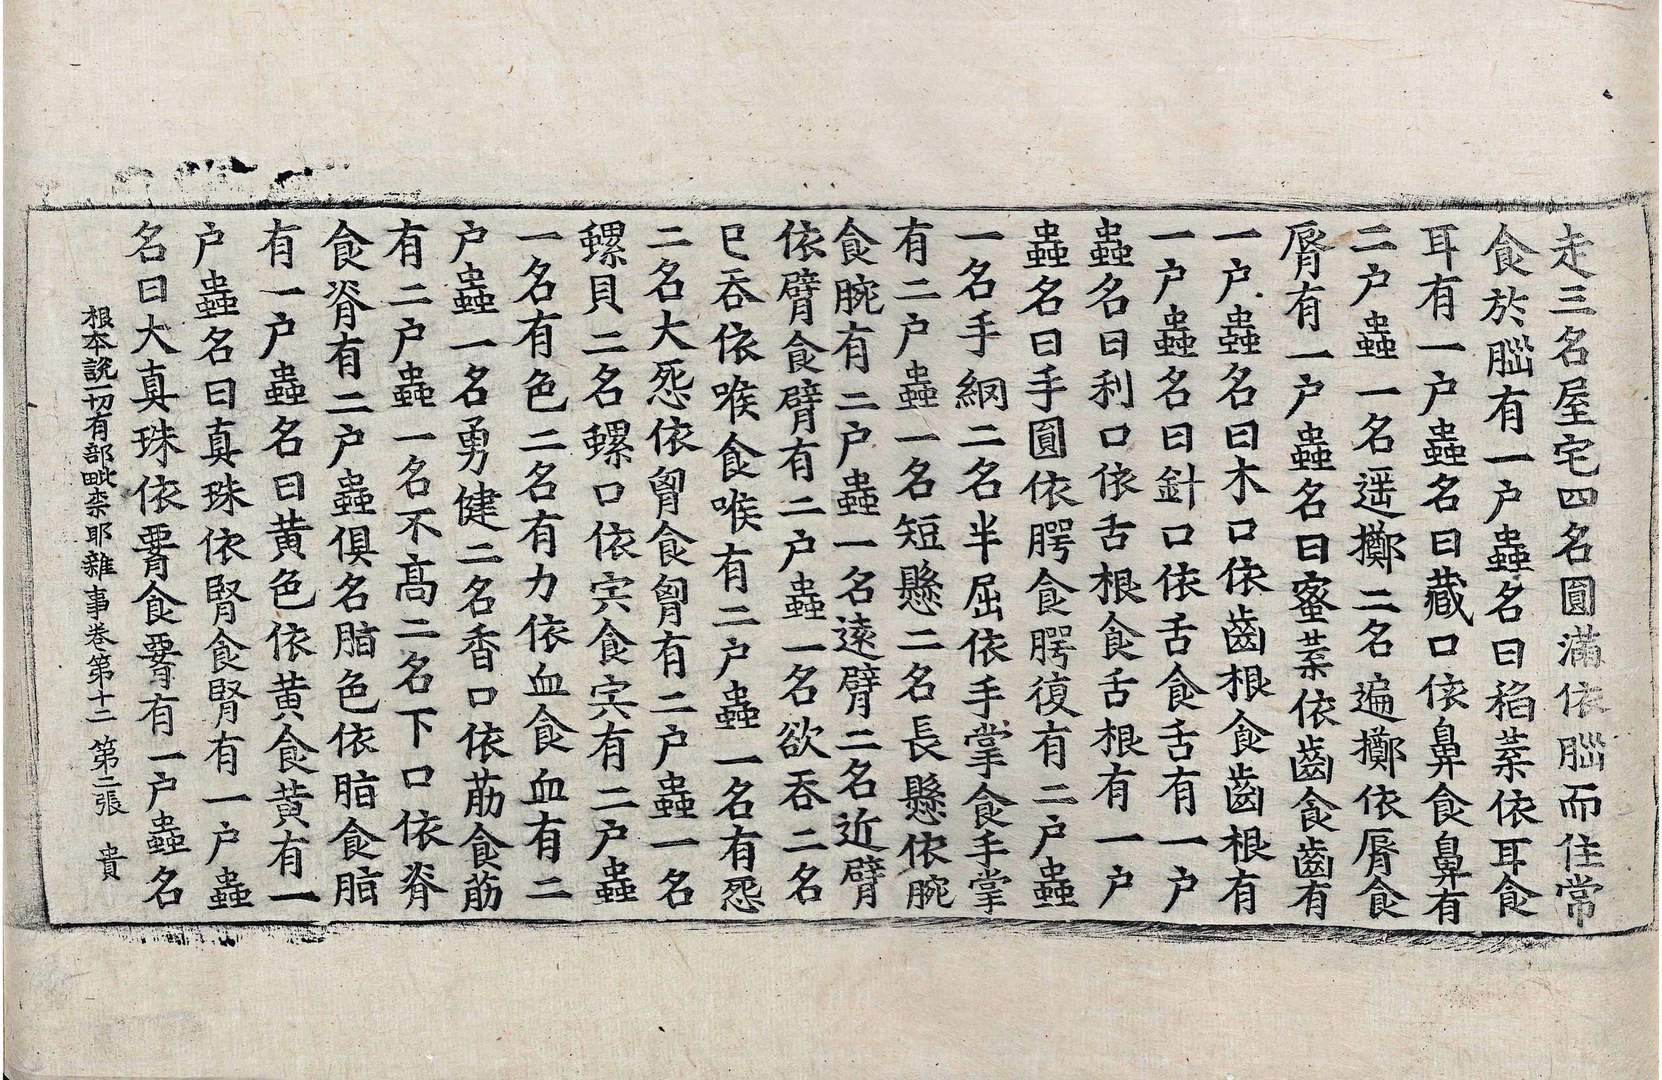 走三名屋宅四名圓滿依腦而住常
食於腦有一户蟲名曰稻葉依耳食
耳有一户蟲名曰藏口依鼻食鼻有
二户蟲一名遥擲二名遍擲依脣食
脣有一户蟲名曰蜜葉依齒食齒有
一户蟲名曰木口依齒根食齒根有
一户蟲名曰針口依舌食舌有一户
蟲名曰利口依舌根食舌根有一户
蟲名曰手圓依腭食腭復有二户蟲
一名手網二名半屈依手掌食手掌
有二户蟲一名短懸二名長懸依腕
食腕有二户蟲一名遠臂二名近臂
依臂食臂有二户蟲一名欲吞二名
已吞依喉食喉有二户蟲一名有怨
二名大怨依胷食胷有二户蟲一名
螺貝二名螺口依宍食宍有二户蟲
一名有色二名有力依血食血有二
户蟲一名勇健二名香口依筋食筋
有二户蟲一名不高二名下口依脊
食脊有二户蟲俱名脂色依脂食脂
有一户蟲名曰黄色依黄食黄有一
户蟲名曰真珠依腎食腎有一户蟲
名曰大真珠依䯗食䯗有一户蟲名
根本說一切有部毗柰耶雜事卷第十二 第二張 貴